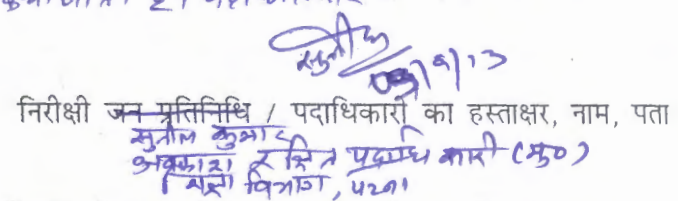 सुनील
03/9/13
निरीक्षी जन प्रतिनिधि / पदाधिकारी का हस्ताक्षर, नाम, पता
सुनील कुमार
अवकाश रक्षित पदाधिकारी (मु०)
शिक्षा विभाग, पटना